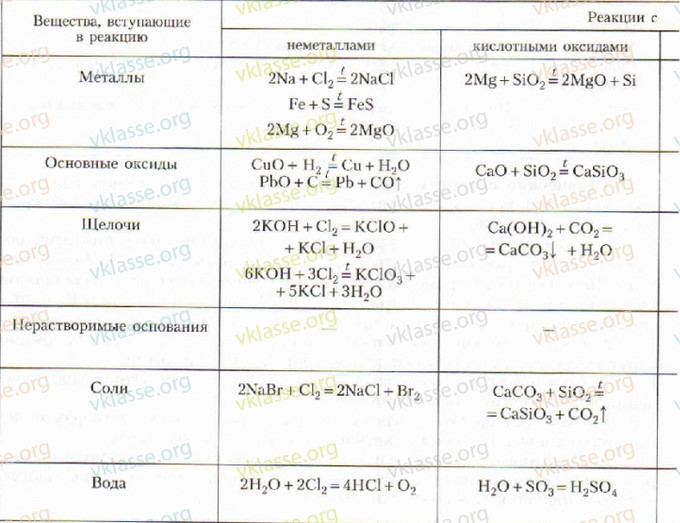 Вещества, вступающие
в реакцию
Реакции с
неметаллами
кислотными оксидами
Металлы
2Na + Cl₂ =ᵗ 2NaCl
Fe + S =ᵗ FeS
2Mg + O₂ =ᵗ 2MgO
2Mg + SiO₂ =ᵗ 2MgO + Si
Основные оксиды
CuO + H₂ =ᵗ Cu + H₂O
PbO + C =ᵗ Pb + CO↑
CaO + SiO₂ =ᵗ CaSiO₃
Щелочи
2KOH + Cl₂ = KClO +
+ KCl + H₂O
6KOH + 3Cl₂ =ᵗ KClO₃ +
+ 5KCl + 3H₂O
Ca(OH)₂ + CO₂ =
= CaCO₃↓ + H₂O
Нерастворимые основания
—
—
Соли
2NaBr + Cl₂ = 2NaCl + Br₂
CaCO₃ + SiO₂ =ᵗ
= CaSiO₃ + CO₂↑
Вода
2H₂O + 2Cl₂ = 4HCl + O₂
H₂O + SO₃ = H₂SO₄
vklasse.org